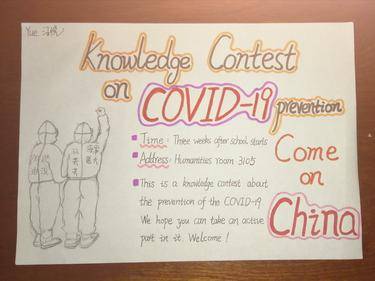 Yue
Knowledge Contest
on COVID-19 prevention
Time: Three weeks after school starts
Address: Humanities room 3105
This is a knowledge contest about
the prevention of the COVID-19.
We hope you can take an active
part in it. Welcome!
Come
on
China